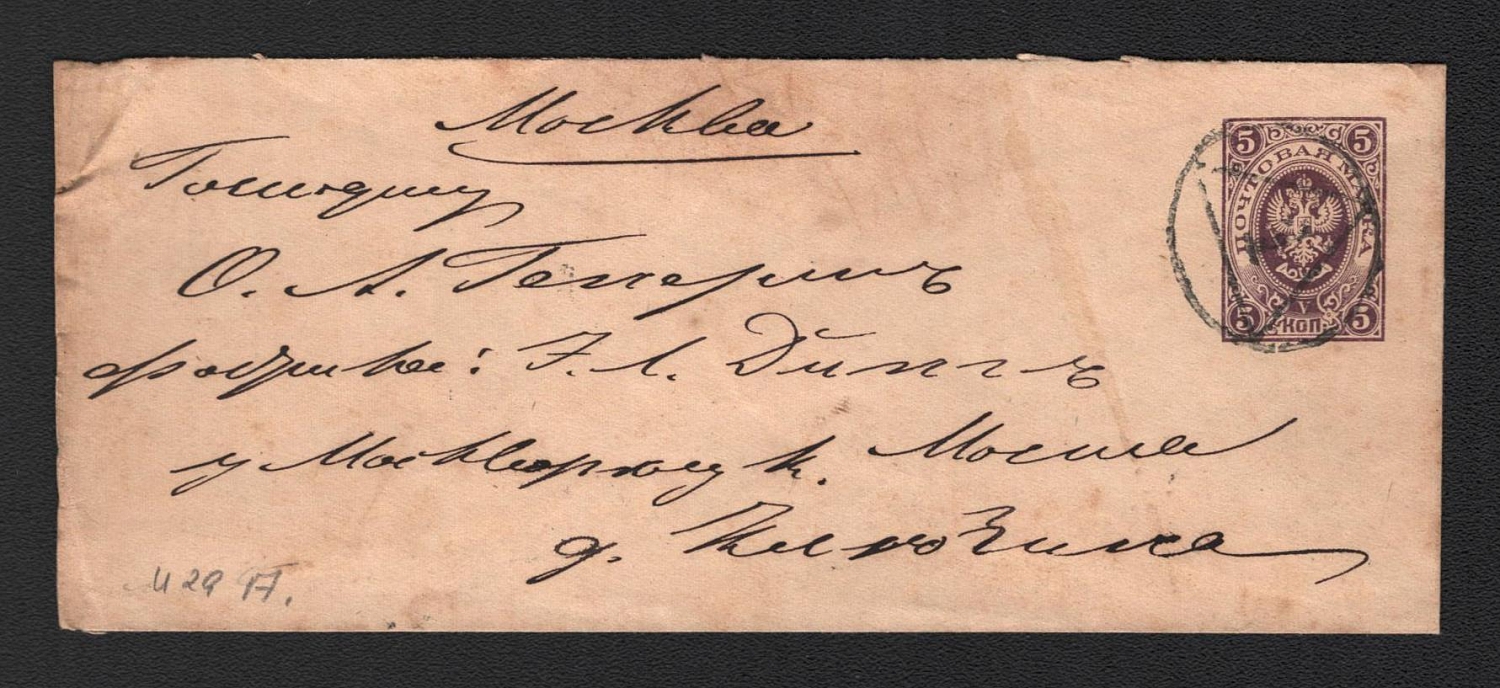 Москва
Господину
О. А. Геперлинъ
фабрика: Ф. Л. Динга
у Москворецк. Моста
д. Клюзина
5 ПОЧТОВАЯ МАРКА 5
5 КОП. 5
М 29